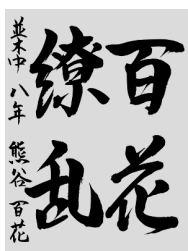 百花
繚乱
並木中 八年 熊谷 百花